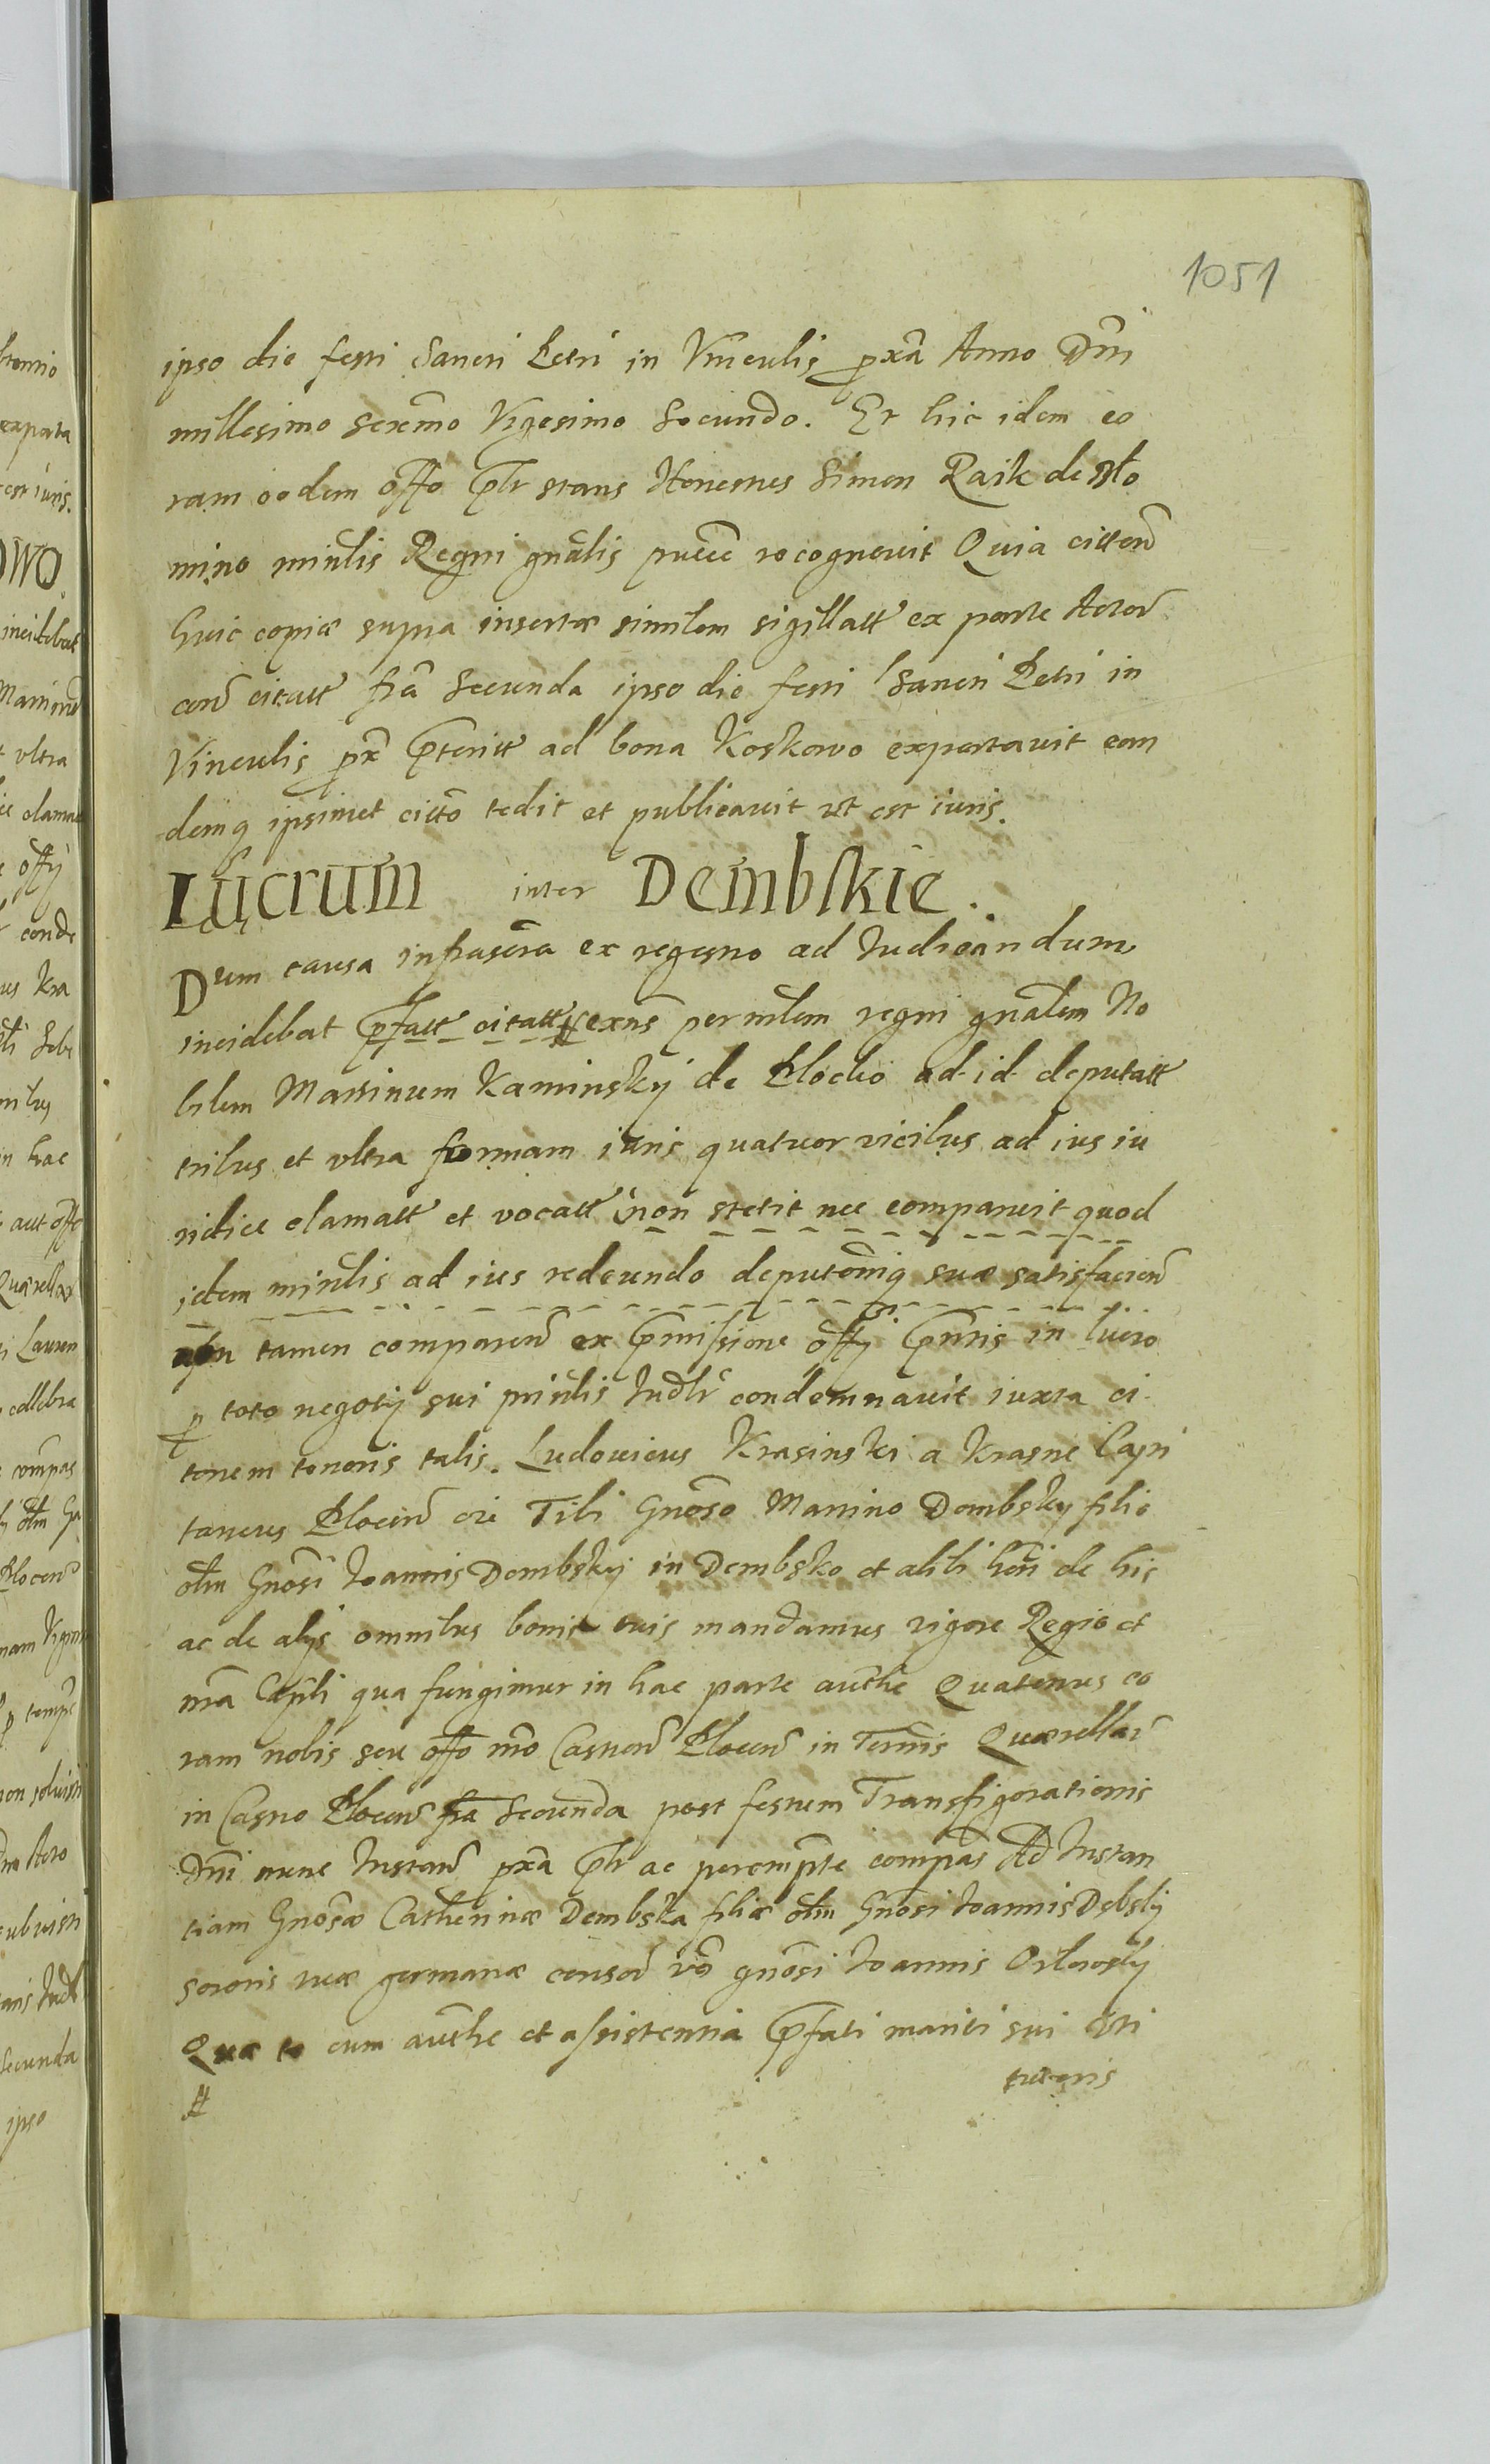 1051
ipso die festi Sancti Petri in Vinculis pxã Anno Dni
millesimo sexcmo Vigesimo Secundo. Et hic idem co
ram eodem offo prlr stans Honestus Simon Raik de
mino minlis Regni gnalis recognovit Quia citten
huic copiæ supra insertæ similem sigillatt ex parte Actor
con citatt fria Secunda ipso die festi Sancti Petri in
Vinculis px prteritt ad bona Koskowo exportavit ean
demq ipsimet citto tedit et publicavit ut est iuris.
Lucrum inter Dembskie.
Dum causa infrascra ex regestro ad Judicandum
incidebat prfatt citatt # exns per mlem regni gnalem No
bilem Martinum Kaminskÿ de Plocko ad id deputatt
tribus et ultra formam iuris quatuor vicibus ad ius iu
ridice clamatt et vocatt non stetit nec comparuit quod
idem minlis ad ius redeundo deputoniq suæ satisfacien
tamen comparen ex prmissione offÿ prntis in lucro
p toto negotÿ sui prinlis Judlr condemnavit iuxta ci
tonem tenoris talis. Ludovicus Krasinski a Krasne Capi
taneus Plocen cri Tibi Gnoso Martino Dembskÿ filio
olim Gnosi Joannis Dembskÿ in Dembsko et alibi hæri de his
ac de alÿs omnibus bonis tuis mandamus rigore Regio et
nra Capnli qua fungimur in hac parte authe Quatenus co
ram nobis seu offo nro Castren Plocen in Termis Quærellar
in Castro Plocen fria Secunda post festum Transfigorationis
Dni nunc Instan pxã prlr ac perempte compas Ad Instan
tiam Gnosæ Catherinæ Dembska filiæ olim Gnosi Joannis Dębskÿ
sororis tuæ germanæ consor vo gnosi Joannis
Quæ te cum authe et assistentia prfati mariti sui uti
tutoris
#